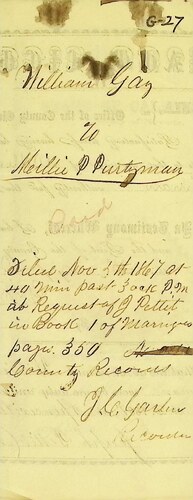 G-27
William Gay
to
Millie P Purtzman
Filed Nov 5th 1867 at
40 min past 3 o'ck P.M
at Request of J Pettit
in Book 1 of Marriages
page. 350
County Records
Recorder